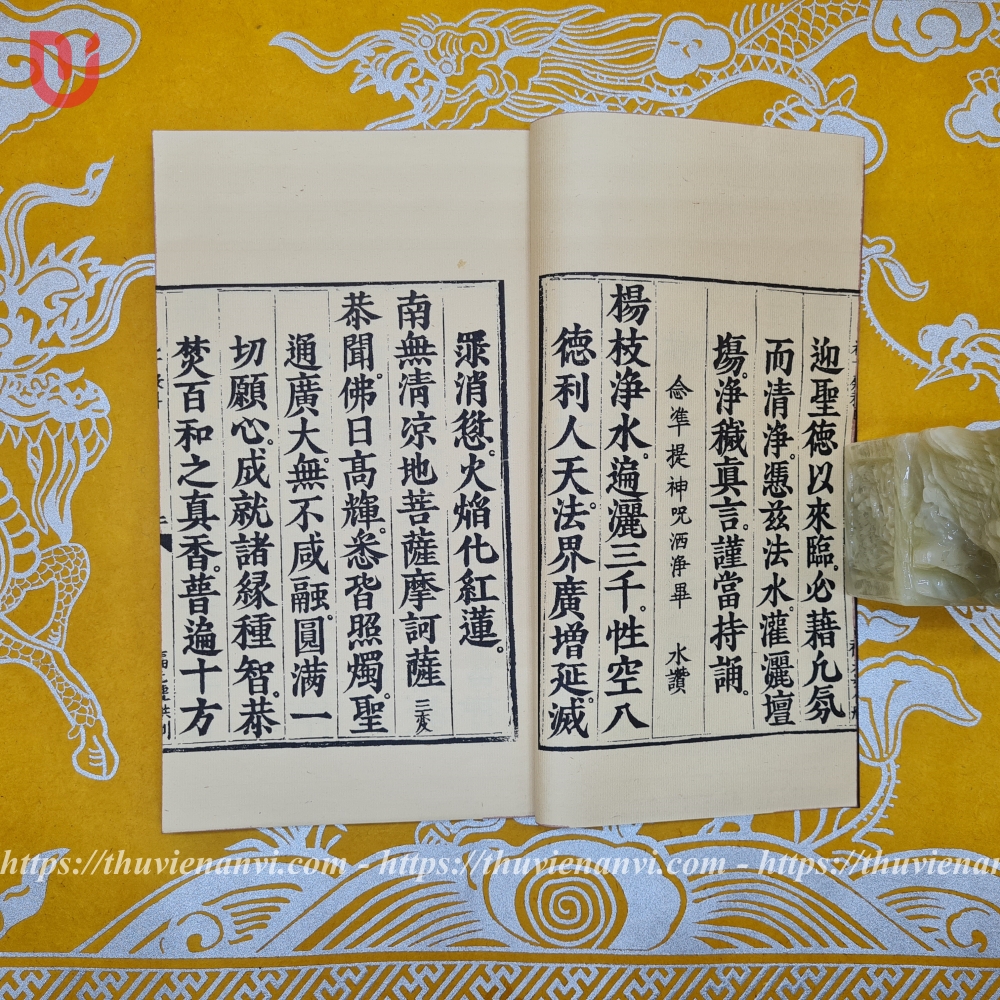 迎聖德以來臨。必藉凢氛
而清净。憑茲法水。灌灑壇
塲。净穢真言。謹當持誦。
念準提神呪洒净畢　水讚
楊枝净水。遍灑三千。性空八
德利人天。法界廣增延。滅
罪消愆。火焰化紅蓮。
南無清凉地菩薩摩訶薩 三变
恭聞。佛日髙輝。悉皆照燭。聖
通廣大。無不咸融。圓满一
切願心。成就諸緣種智。恭
焚百和之真香。普遍十方
https://thuvienanvi.com - https://thuvienanvi.com - https://thuvienan